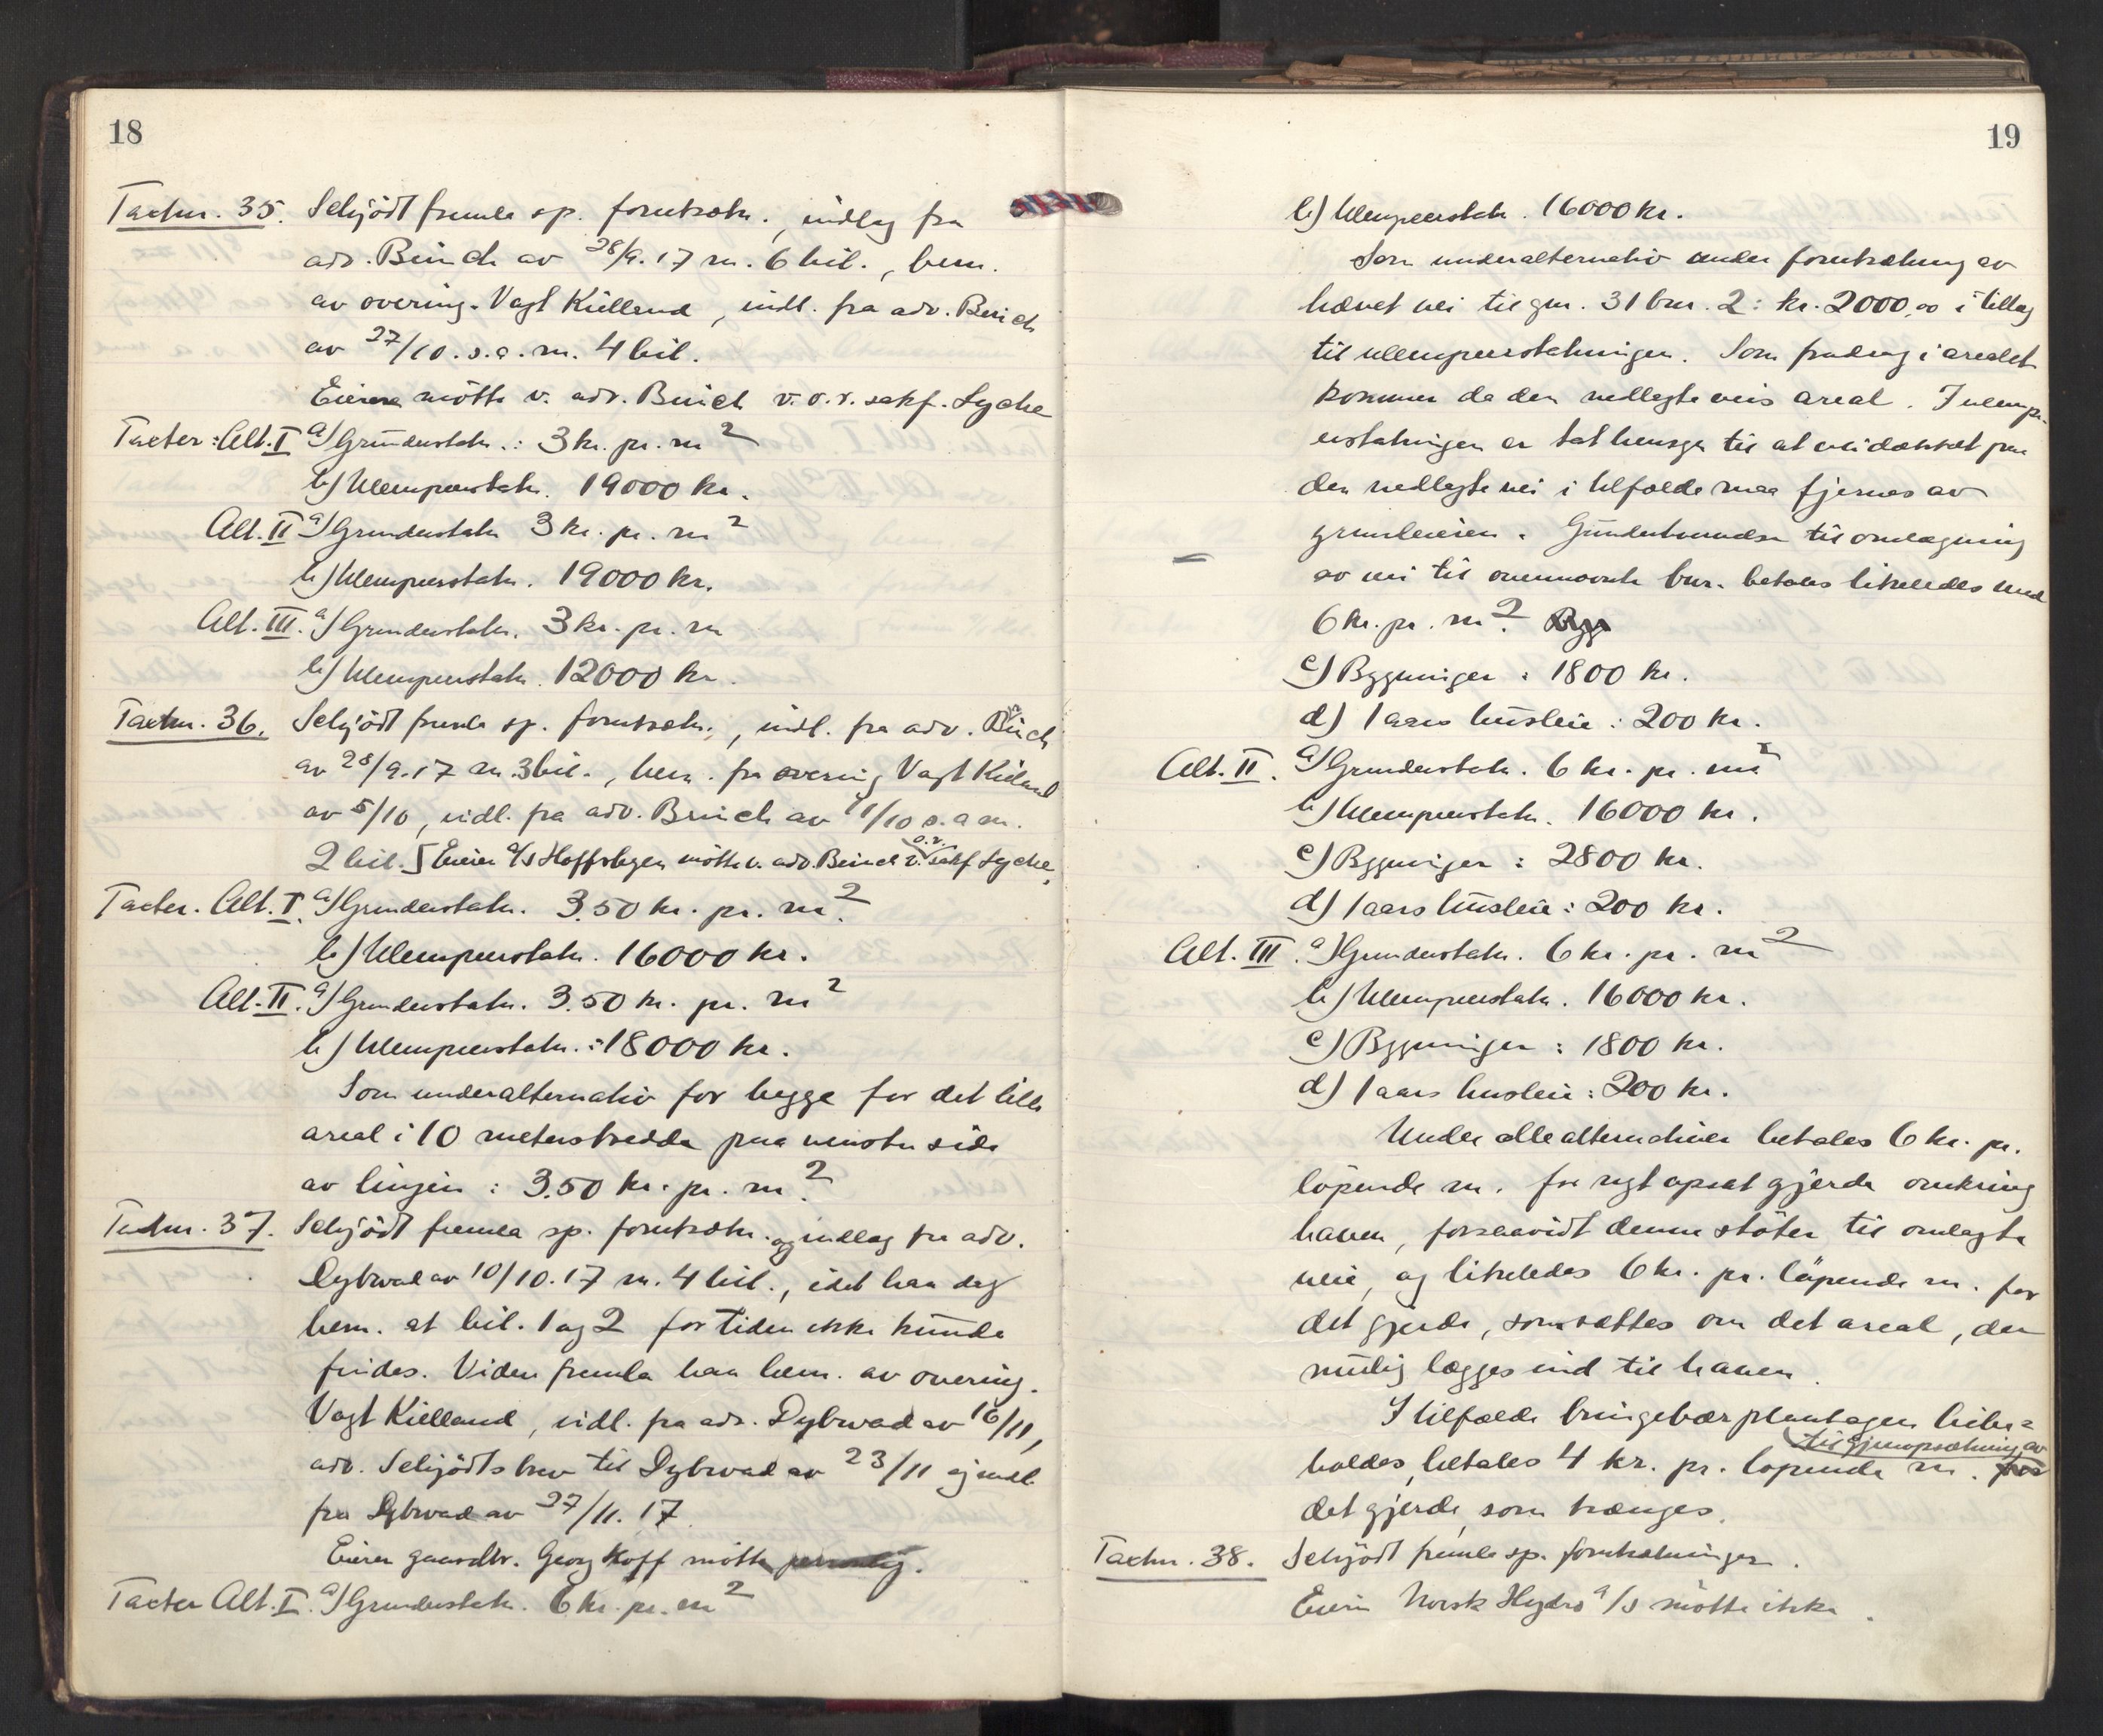 18
Taxtnr. 35. Schjödt fremla sp. forutsætn., indlæg fra
adv. Beich av 28/9.17 m. 6 bil., bem.
av overing. Vagt Kielland, indl. fra adv. Beich
av 27/10. s.a. m. 4 bil.
Eieren mötte v. adv. Beich v. o.r. sakf. Lyche
Taxter: Alt. I a) Grunderstatn.: 3 kr. pr. m2
b) Ulempeerstatn. 19000 kr.
Alt. II a) Grunderstatn 3 kr. pr. m2
b) Ulempeerstatn. 19000 kr.
Alt. III. a) Grunderstatn. 3 kr. pr. m
b) Ulempeerstatn. 12000 kr.
Taxtnr. 36. Schjödt fremla sp. forutsætn., indl. fra adv. Beich
av 28/9.17 m. 3 bil., bem. fra overing Vagt Kielland
av 5/10, indl. fra adv. Beich av 11/10 s.a m.
2 bil. Eieren a/s Hoffsbyen mötte v. adv. Beich v. o.r. sakf Lyche.
Taxter. Alt. I. a) Grunderstatn. 3.50 kr. pr. m2.
b) Ulempeerstatn. 16000 kr.
Alt. II. a) Grunderstatn. 3.50 kr. pr. m2
b) Ulempeerstatn.: 18000 kr.
Som underalternativ for begge for det lille
areal i 10 metersbredde paa venstre side
av linjen: 3.50 kr. pr. m2.
Taxtnr. 37. Schjödt fremla sp. forutsætn. og indlæg fra adv.
Dybwad av 10/10.17 m. 4 bil., idet han dog
bem. at bil. 1 og 2 for tiden ikke kunde
findes. Viden fremla han bem. av overing.
Vagt Kielland, indl. fra adv. Dybwad av 16/11,
adv. Schjödts brev til Dybwad av 23/11 og indl.
fra Dybwad av 27/11. 17.
Eieren gaardbr. Georg Hoff mötte personlig.
Taxter Alt. I. a) Grunderstatn. 6 kr. pr. m2
19
b) Ulempeerstatn. 16000 kr.
Som underalternativ under forutsætning av
hævet vei til gnr. 31 bnr. 2: kr. 2000,00 i tillæg
til ulempeerstatningen. Som fradrag i arealet
kommer da den nedlagte veis areal. I ulempe-
erstatningen er tat hensyn til at veidækket paa
den nedlagte vei i tilfælde maa fjernes av
grundeieren. Grunderhvervelse til omlægning
av vei til ovennævnte bnr. betales likeledes med
6 kr. pr. m2.
c) Bygninger: 1800 kr.
d) 1 aars husleie: 200 kr.
Alt. II. a) Grunderstatn. 6 kr. pr. m2
b) Ulempeerstatn. 16000 kr.
c) Bygninger: 2800 kr.
d) 1 aars husleie: 200 kr.
Alt. III. a) Grunderstatn. 6 kr. pr. m2
b) Ulempeerstatn. 16000 kr.
c) Bygninger: 1800 kr.
d) 1 aars husleie: 200 kr.
Under alle alternativer betales 6 kr. pr.
löpende m. for nyt opsat gjerde omkring
haven, forsaavidt denne stöter til omlagte
veie, og likeledes 6 kr. pr. löpende m. for
det gjerde, som sættes om det areal, der
mulig lægges ind til haven.
I tilfælde bringebærplantagen bibe=
holdes, betales 4 kr. pr. löpende m. til gjenopsætning av
det gjerde, som trænges.
Taxtnr. 38. Schjödt fremla sp. forutsætninger.
Eieren Norsk Hydro a/s mötte ikke.